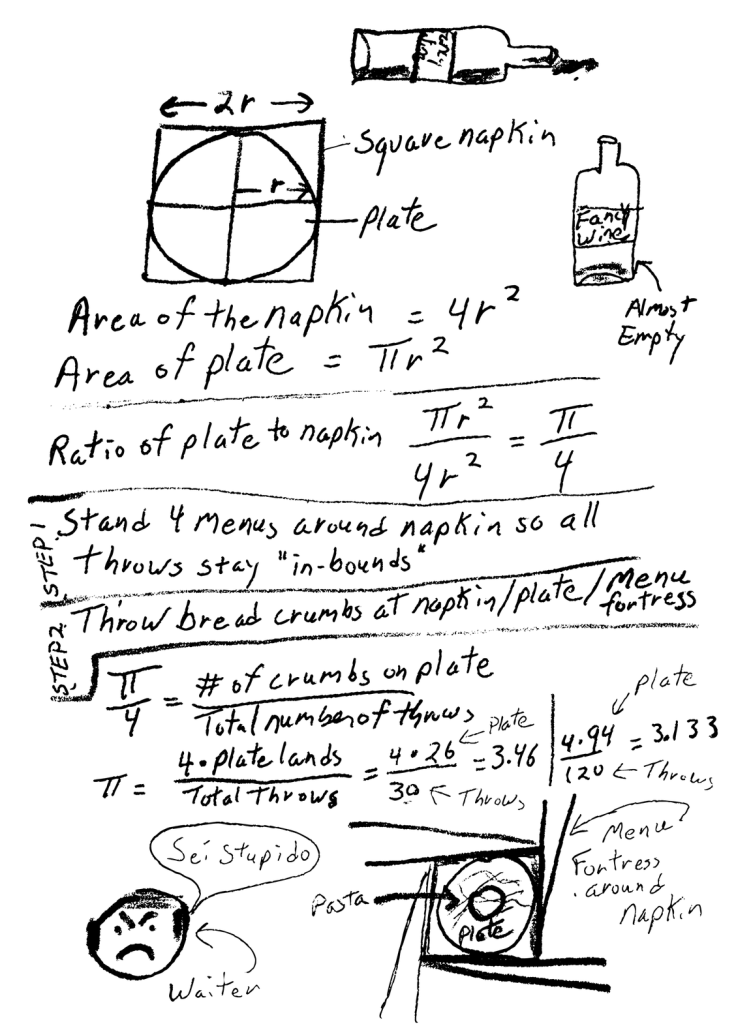 2r
Square napkin
r
Plate
Fancy
Wine
Almost
Empty
Area of the napkin = 4r²
Area of plate = πr²
Ratio of plate to napkin πr²/4r² = π/4
STEP 1
Stand 4 menus around napkin so all
throws stay "in-bounds"
STEP 2
Throw bread crumbs at napkin/plate/Menu
fortress
π/4 = # of crumbs on plate/Total number of throws
π = 4·plate lands/Total throws = 4·26/30 = 3.46
Plate
Throws
4·94/120 = 3.133
Plate
Throws
Sei Stupido
Waiter
Pasta
Plate
Menu
Fortress
around
Napkin